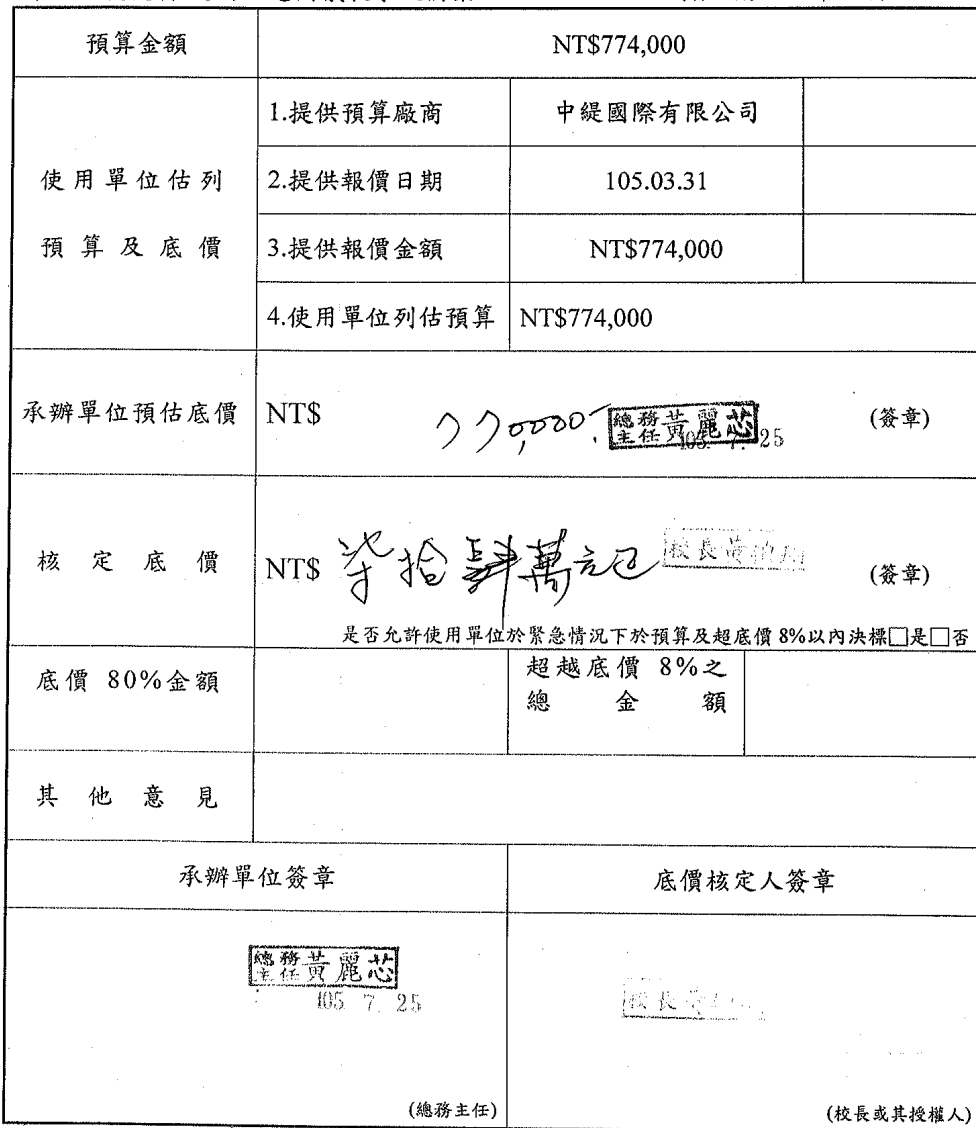 預算金額 NT$774,000
使用單位估列
預算及底價
1.提供預算廠商 中緹國際有限公司
2.提供報價日期 105.03.31
3.提供報價金額 NT$774,000
4.使用單位列估預算 NT$774,000
承辦單位預估底價 NT$ 770,000.- 總務主任 黃麗芯 105. 7. 25 (簽章)
核定底價 NT$ 柒拾肆萬元 校長黃 (簽章)
是否允許使用單位於緊急情況下於預算及超底價 8%以內決標□是□否
底價 80%金額
超越底價 8%之
總金額
其他意見
承辦單位簽章 底價核定人簽章
總務主任 黃麗芯
105 7. 25
校長
(總務主任) (校長或其授權人)